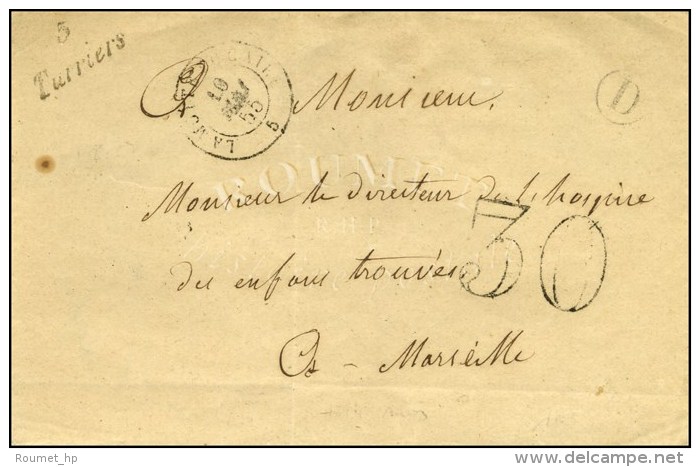 5
Turriers
LA MO
10
MAI
55
5
D
A Monsieur,
ROUMET
Monsieur le directeur de l'hospice
30
des enfans trouvés
A - Marseille
Roumet_hp
www.delcampe.net